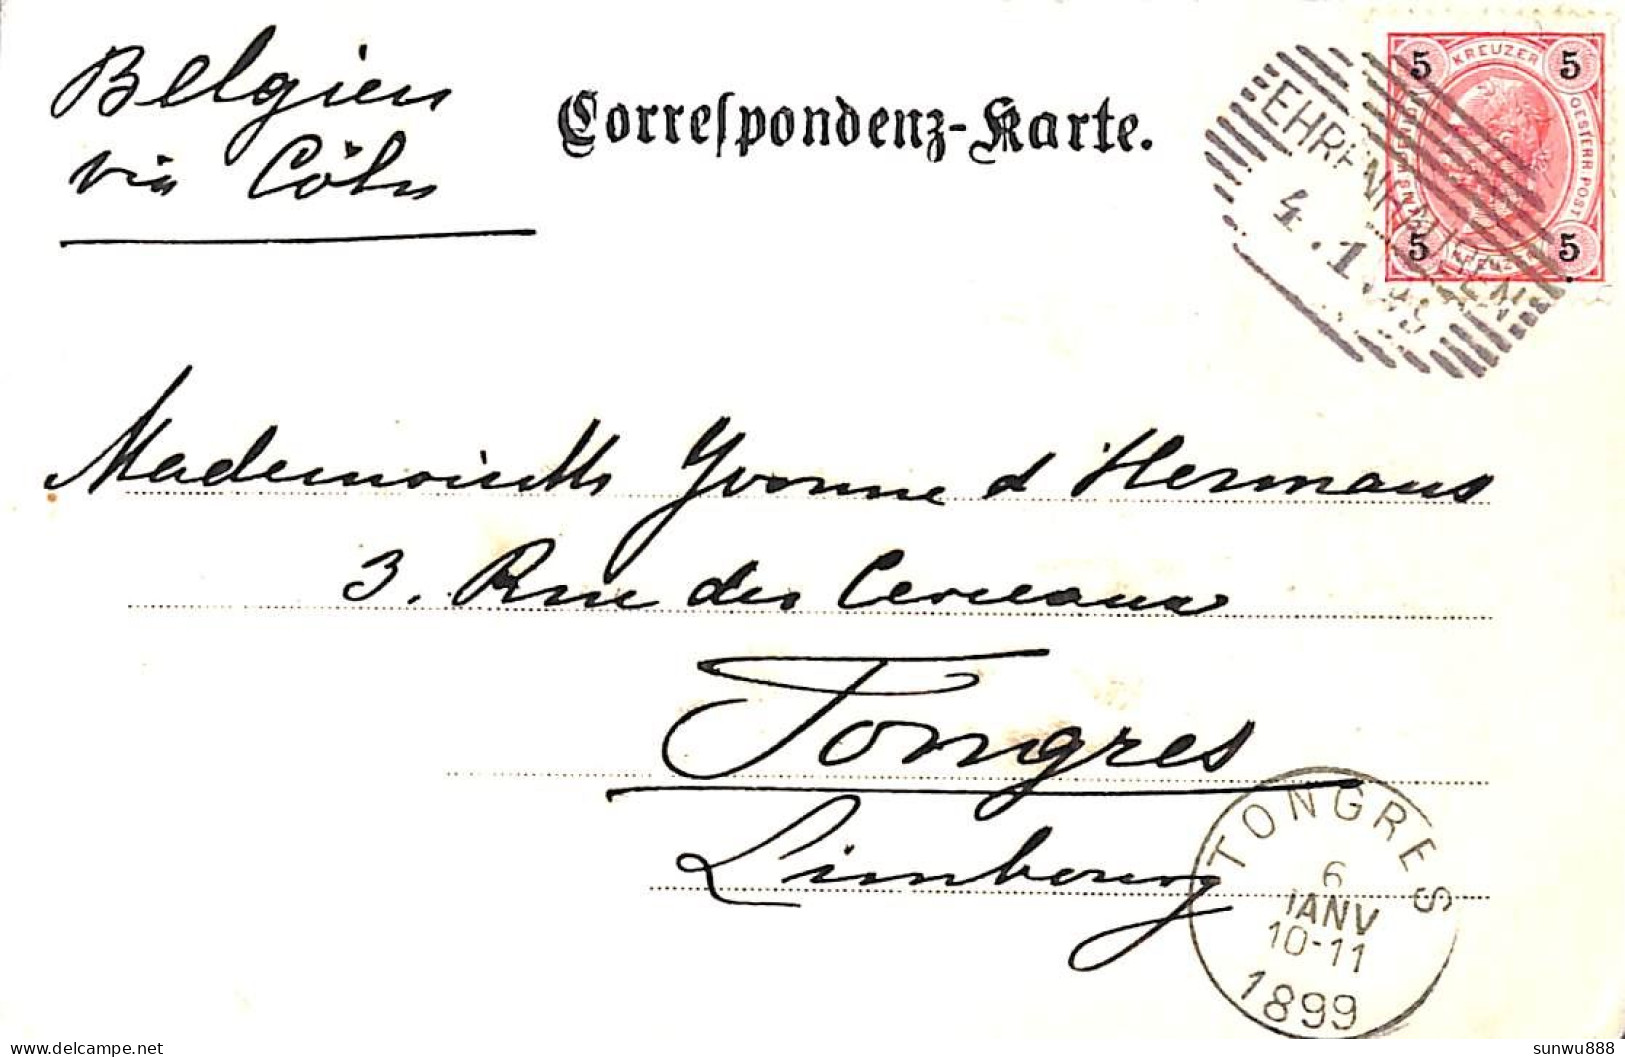 Belgien
via Cöln
Correspondenz-Karte.
5 KREUZER 5
OESTERR. POST
5 5
EHRENHAUSEN
4.1.99
Mademoiselle Yvonne d'Hermans
3. Rue des Cerceaux
Tongres
Limbourg
TONGRES
6
JANV
10-11
1899
sunwu888